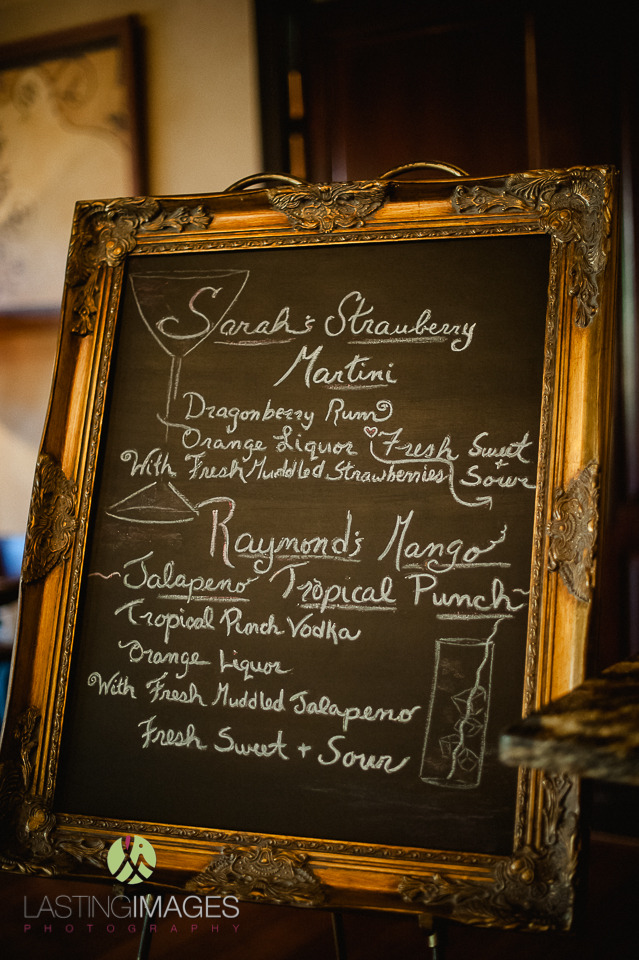 Sarah's Strauberry
Martini
Dragonberry Rum
Orange Liquor ♡ Fresh Sweet
With Fresh Muddled Strawberries + Sour
Raymond's Mango
Jalapeno Tropical Punch
Tropical Punch Vodka
Orange Liquor
With Fresh Muddled Jalapeno
Fresh Sweet + Sour
LASTINGIMAGES
PHOTOGRAPHY